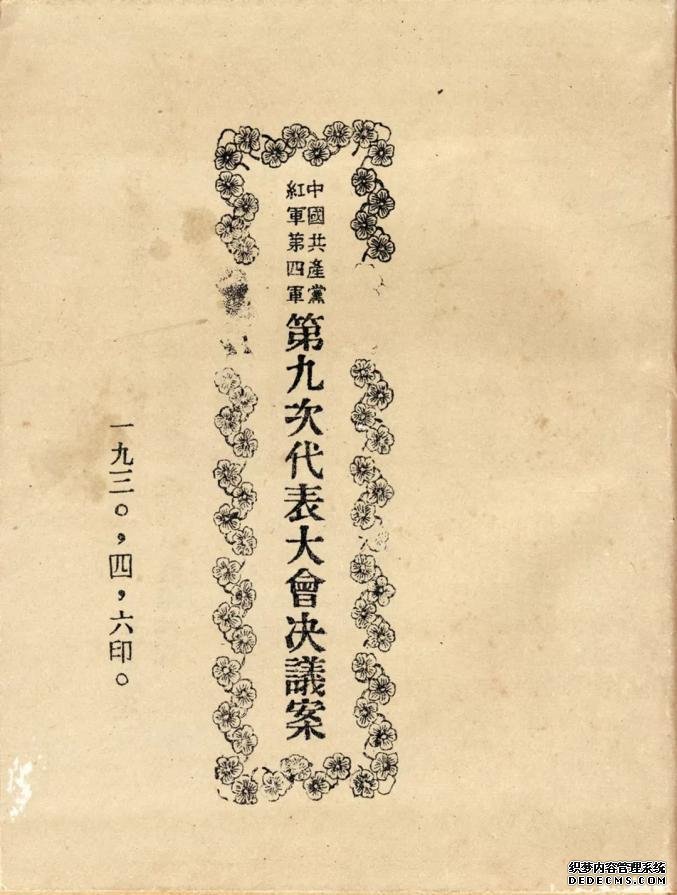 中國共產黨
紅軍第四軍
第九次代表大會決議案
一九三〇，四，六印。
织梦内容管理系统
DEDECMS.COM